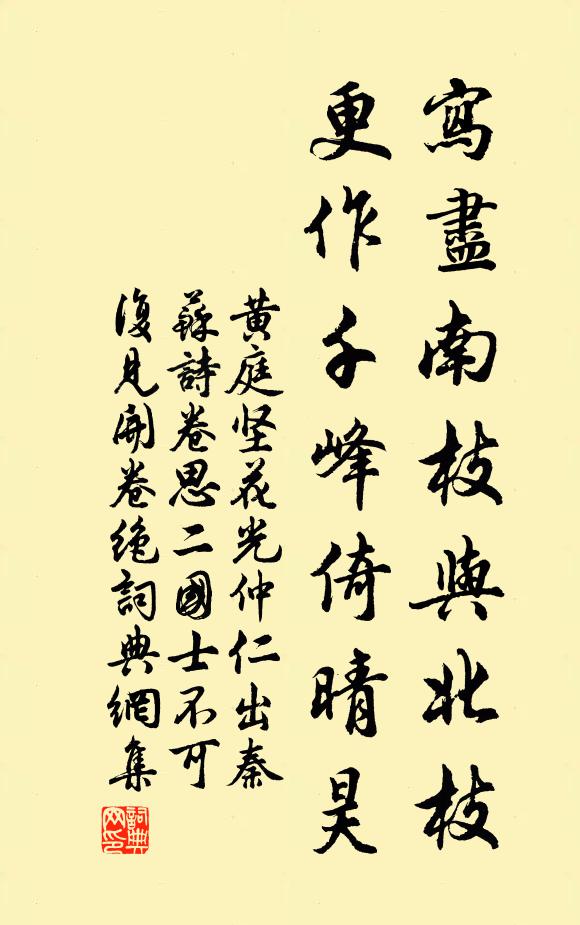 寫盡南枝與北枝
更作千峰倚晴昊
黃庭坚花光仲仁出秦
蘇詩卷思二國士不可
復見開卷绝詞典網集
詞典网印